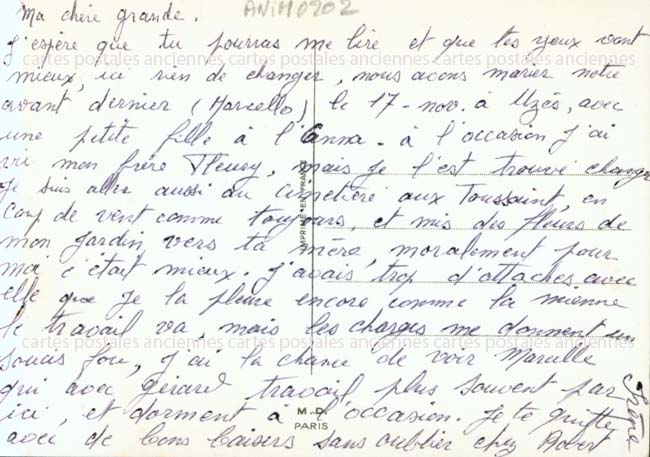 ANIM0202
Ma chère grande.
J'espère que tu pourras me lire et que tes yeux vont
mieux, ici rien de changer, nous avons marier notre
avant dernier (Marcello) le 17-nov. à Uzès, avec
une petite fille à l'Anna. à l'occasion j'ai
vu mon frère Fleury, mais je l'est trouvé changer
je suis aller aussi au cimetière aux Toussaint, en
coup de vent comme toujours, et mis des fleurs de
mon jardin vers ta mère, moralement pour
moi c'était mieux. J'avais trop d'attaches avec
elle que je la pleure encore comme la mienne
le travail va, mais les charges me donnent un
soucis fou, j'ai la chance de voir Marcelle
qui avec gérard travail plus souvent par
ici, et dorment à l'occasion. Je te quitte
avec de bons baisers sans oublier chez Robert
Irène
IMPRIMÉ EN FRANCE
M.D.
PARIS
cartes postales anciennes cartes postales anciennes cartes postales anciennes